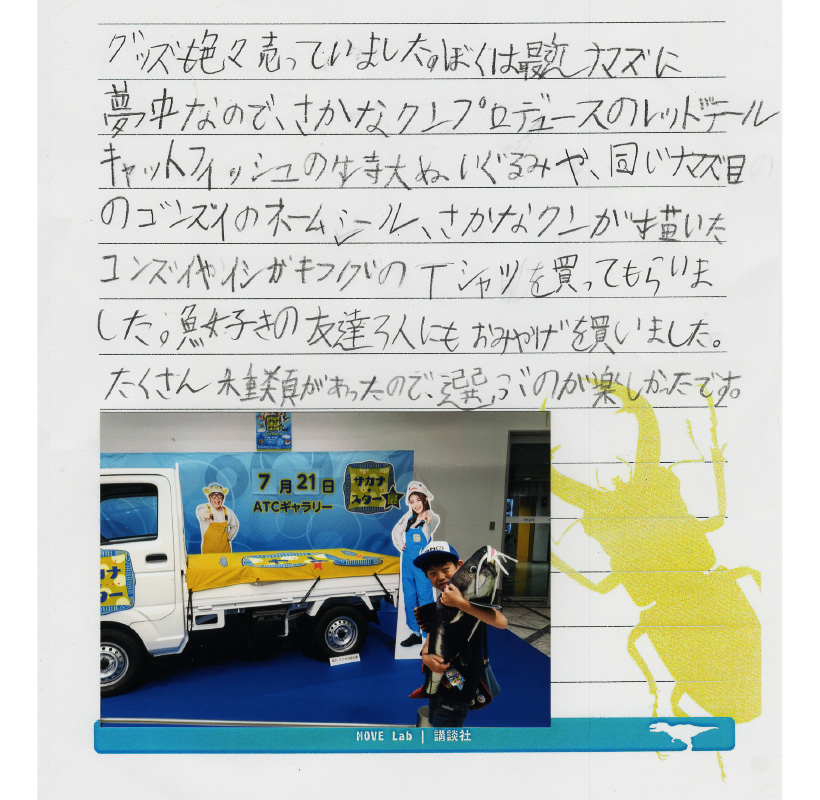 グッズも色々売っていました。ぼくは最近ナマズに
夢中なので、さかなクンプロデュースのレッドテール
キャットフィッシュの特大ぬいぐるみや、同じナマズ目
のゴンズイのネームシール、さかなクンが描いた
ゴンズイやイシガキフグのTシャツを買ってもらいま
した。魚好きの友達3人にもおみやげを買いました。
たくさん種類があったので、選ぶのが楽しかったです。
7月21日
ATCギャラリー
サカナ
スター
サカナ
スター
MOVE Lab | 講談社